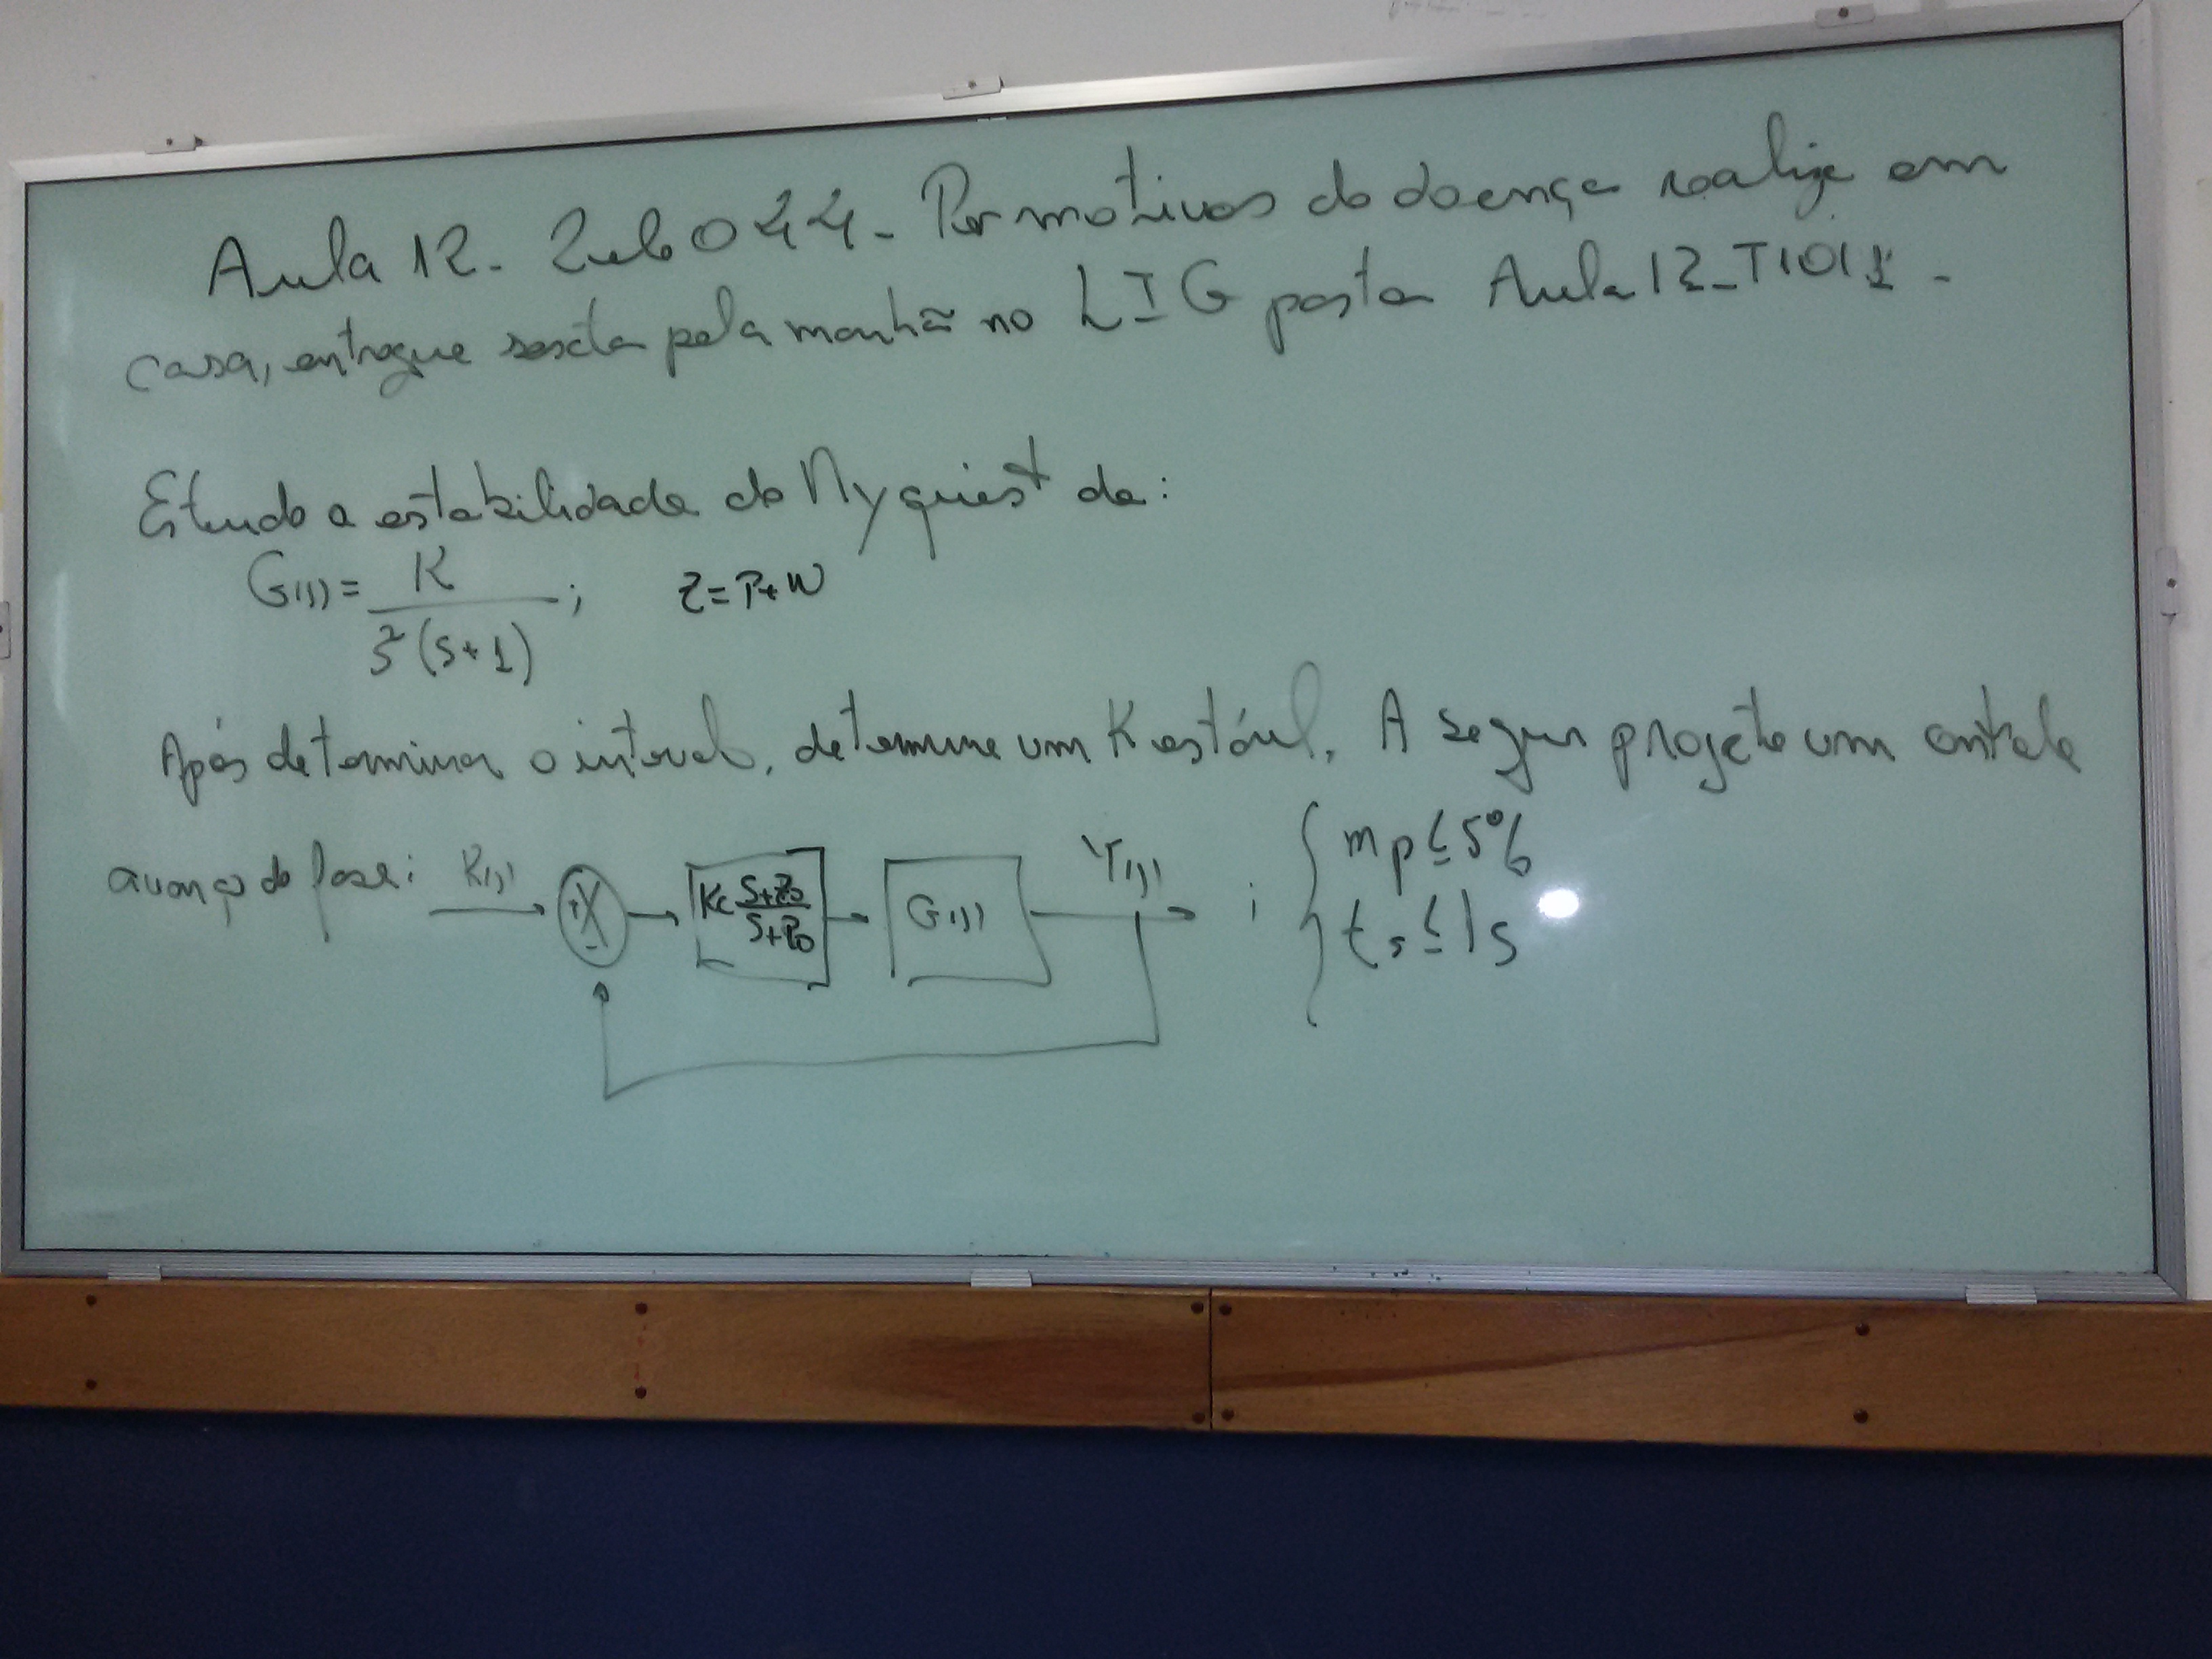 Aula 12. Zulo 044 - Por motivos de doença realize em
casa, entregue sexta pela manhã no LIG pasta Aula 12_T1011 -
Estudo a estabilidade de Nyquist de:
G(s) = K / s²(s+1) ; Z=P+N
Após determinar o intervalo, determine um K estável. A seguir projete um controle
avanço de fase: R(s) + - Kc s+z0 / s+p0 G(s) Y(s) ; { mp ≤ 5%
ts ≤ 1s